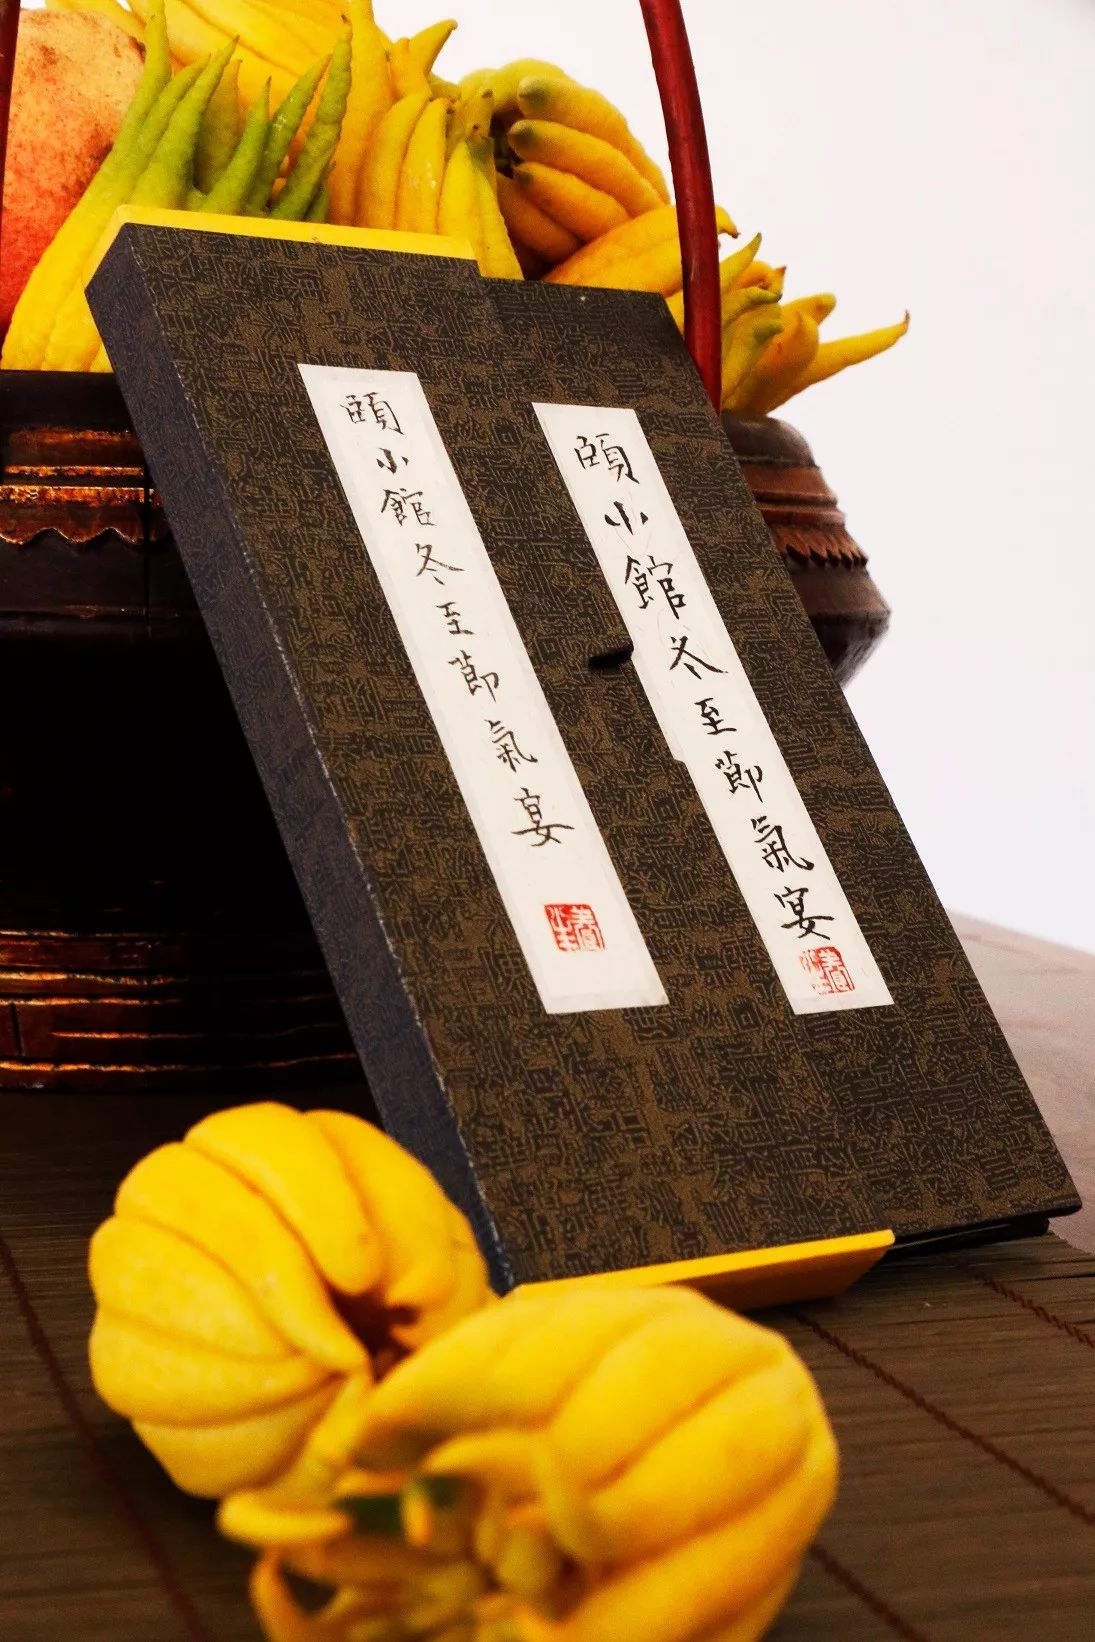 頤小館冬至節氣宴
頤小館冬至節氣宴